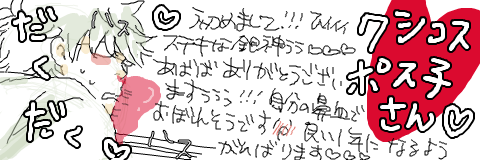 だく
だく
バス
初めまして!!! ひぃぃぃ
ステキな銀神ううう♡♡♡
あばば ありがとうござい
ますううう!!! 自分の鼻血で
おぼれそうです 良い1年になるよう
がんばります♡
クシコス
ポス子
さん♡